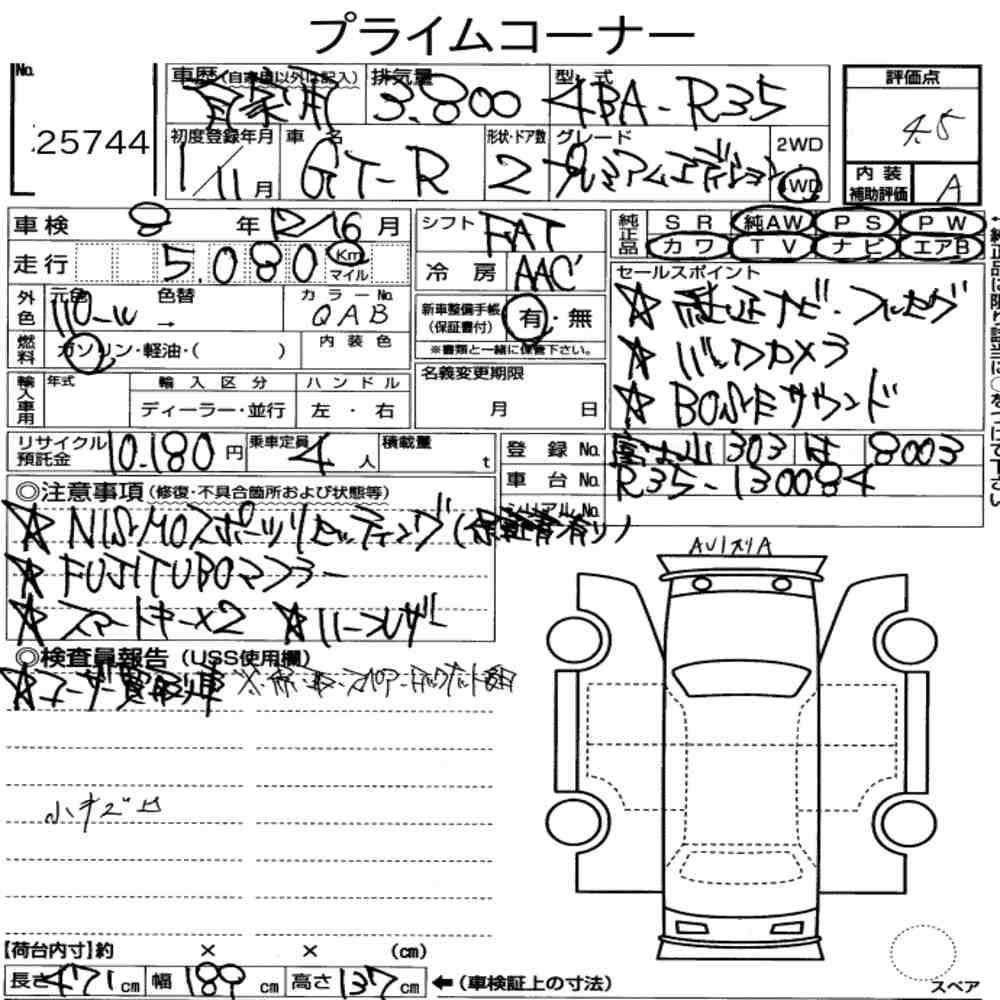 プライムコーナー
No. 25744
車歴(自家用以外は記入) 自家用
排気量 3.800
型式 4BA-R35
評価点 4.5
初度登録年月 1/11月
車名 GT-R
形状・ドア数 2
グレード プレミアムエディション
2WD
4WD
内装補助評価 A
車検 8年12/16月
シフト FAT
純正品 SR 純AW PS PW
カワ TV ナビ エアB
走行 5.080 Km マイル
冷房 AAC
セールスポイント
☆純正ナビ・フルセグ
☆バックカメラ
☆BOSEサウンド
外色 元色 色替 →
カラーNo. QAB
新車整備手帳(保証書付) 有・無
※書類と一緒に保管下さい。
燃料 ガソリン・軽油・( )
内装色
名義変更期限 月 日
輸入車用 年式 輸入区分 ハンドル
ディーラー・並行 左・右
リサイクル預託金 10.180円
乗車定員 4人
積載量 t
登録No. 富士山 303 は 8003
車台No. R35-130084
シリアルNo.
◎注意事項(修復・不具合箇所および状態等)
☆NISMOスポーツリセッティング(保証書有り)
☆FUJITUBOマフラー
☆スマートキー×2 ☆ハーフレザー
◎検査員報告(USS使用欄)
☆ユーザー買取車
小キズ凹
【荷台内寸】約 × × (cm)
長さ471cm 幅189cm 高さ137cm ←(車検証上の寸法)
スペア